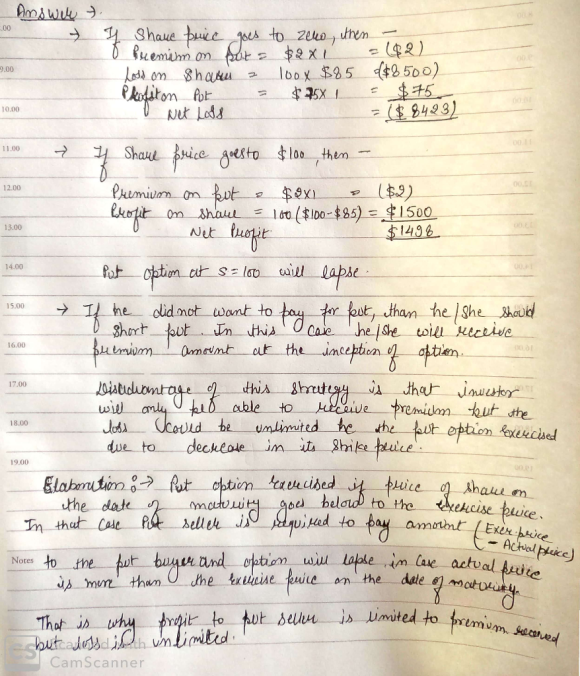 Answer →.
.00
→ If Share price goes to zero, then —
Premium on put = $2 x 1 = ($2)
9.00
Loss on Shares = 100 x $85 ($8500)
Profit on Put = $75 x 1 = $75
10.00
Net Loss = ($8423)
11.00
→ If Share price goes to $100, then —
12.00
Premium on put = $2x1 = ($2)
Profit on share = 100 ($100-$85) = $1500
13.00
Net Profit $1498
14.00
Put option at S = 100 will lapse.
15.00
→ If he did not want to pay for put, than he/she should
short put. In this Case he/she will receive
16.00
premium amount at the inception of option.
17.00
Disadvantage of this strategy is that investor
will only be able to receive premium but the
18.00
loss could be unlimited he the put option exercised
due to decrease in its strike price.
19.00
Elaboration :→ Put option exercised if price of share on
the date of maturity goes below to the exercise price.
In that Case Put seller is required to pay amount (Exer. price
- Actual price)
Notes to the put buyer and option will lapse, in case actual price
is more than the exercise price on the date of maturity.
That is why profit to put seller is limited to premium received
but loss is unlimited.
CS
CamScanner